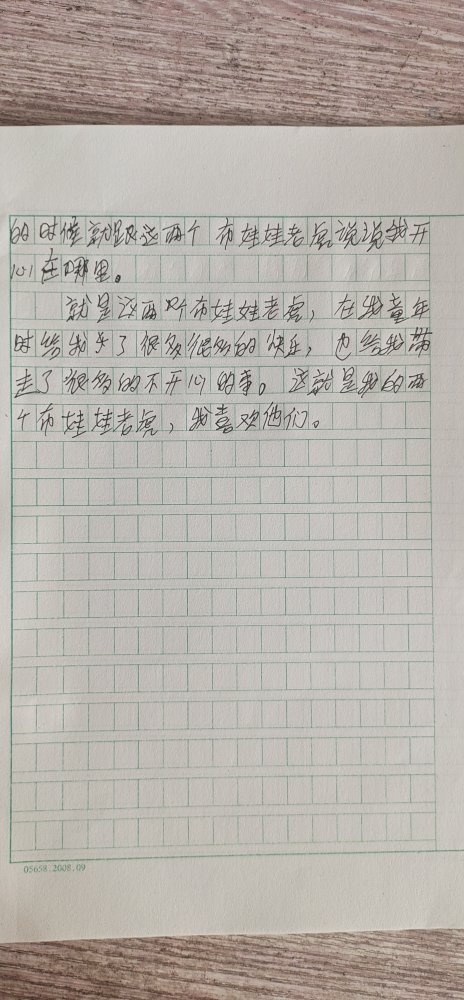 的时候就跟这两个布娃娃老虎说说我开
心在哪里。
就是这两个布娃娃老虎,在我童年
时给我予了很多很多的快乐,也给我带
走了很多的不开心的事。这就是我的两
个布娃娃老虎,我喜欢他们。
05658.2008.09